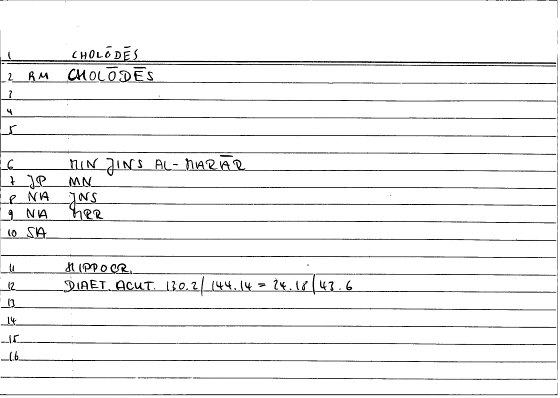 1 CHOLŌDĒS
2 AM CHOLŌDĒS
3
4
5
6 MIN JINS AL-MARĀR
7 JP MN
8 NA JNS
9 NA MRR
10 SA
11 HIPPOCR.
12 DIAET. ACUT. 130.2 / 144.14 = 24.18 / 43.6
13
14
15
16